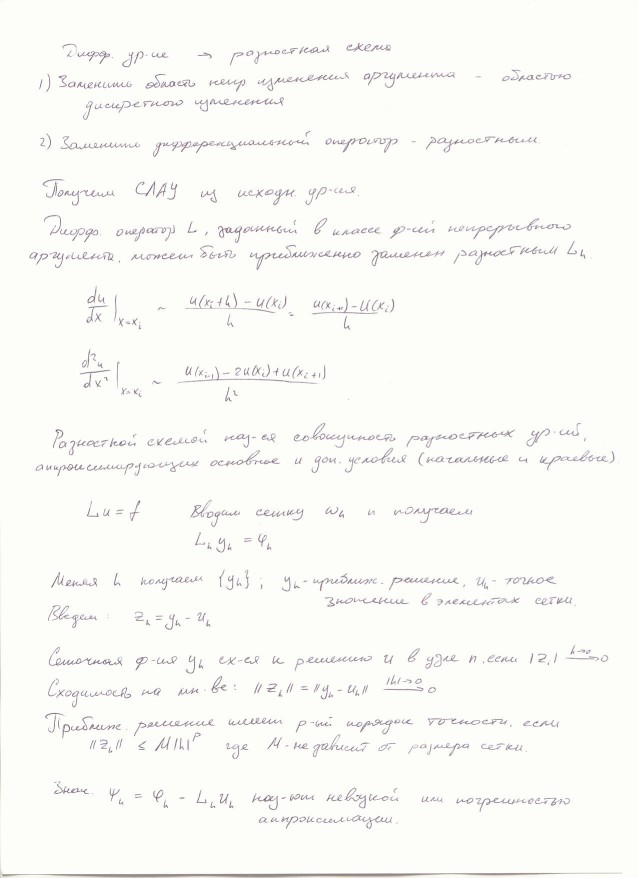 Дифф. ур-ие → разностная схема
1) Заменить область непр изменения аргумента - областью
дискретного изменения
2) Заменить дифференциальный оператор - разностным.
Получем СЛАУ из исходн. ур-ия.
Дифф. оператор L, заданный в классе ф-ий непрерывного
аргумента, может быть приближенно заменен разностным Lₕ.
du/dx |ₓ₌ₓᵢ ~ (u(xᵢ+h) - u(xᵢ))/h = (u(xᵢ₊₁) - u(xᵢ))/h
d²u/dx² |ₓ₌ₓᵢ ~ (u(xᵢ₋₁) - 2u(xᵢ) + u(xᵢ₊₁))/h²
Разностной схемой наз-ся совокупность разностных ур-ий,
аппроксимирующих основное и доп. условия (начальные и краевые)
Lu = f Вводим сетку ωₕ и получаем
Lₕ yₕ = φₕ
Меняя h получаем {yₕ}; yₕ - приближ. решение, uₕ - точное
значение в элементах сетки.
Введем: zₕ = yₕ - uₕ
Сеточная ф-ия yₕ сх-ся к решению u в узле n, если |zₕ| h→0 → 0
Сходимость на мн-ве: ||zₕ|| = ||yₕ - uₕ|| |h|→0 → 0
Приближ. решение имеет p-ый порядок точности, если
||zₕ|| ≤ M|h|ᵖ где M - не зависит от размера сетки.
Знач. ψₕ = φₕ - Lₕuₕ наз-ют невязкой или погрешностью
аппроксимации.